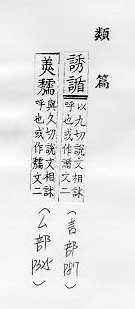 類篇
誘䛻 以九切說文相訹
呼也或作䛻文二
(言部 P87)
與久切說文相訹
呼也或作 文二
(厶部 P325)